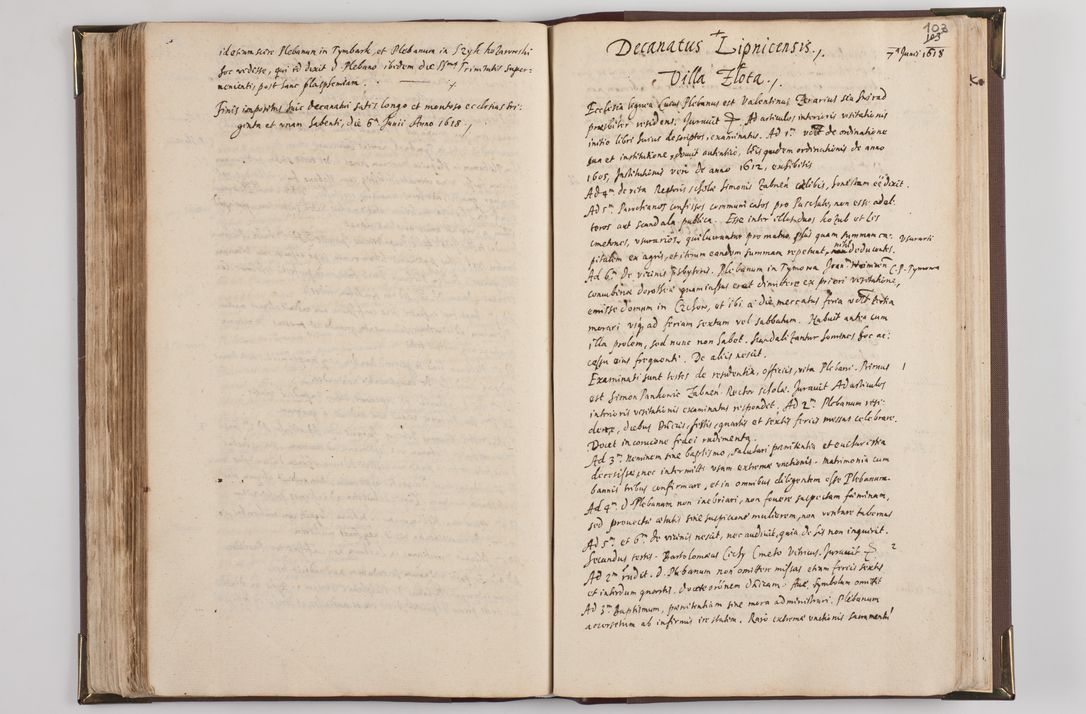 idetum scire Plebanum in Tymbark, et Plebanum in
hoc vidisse, qui id dixit d. Plebano ibidem die SSmae Trinitatis super-
venienti, post hanc blasphemiam.
Finis impositus huic decanatui satis longo et montoso ecclesias tri-
ginta et unam habenti, die 6ta Junii Anno 1618.
103
105
Decanatus Lipnicensis.
7a Junii 1618
Villa Zlota.
Ecclesia lignea Cuius Plebanus est Valentinus seu Swirad
praesbiter residens. Juravit Ad articulos interioris visitationis
initio libri huius descriptos, examinatus. Ad 1m de ordinatione
sua et institutione, docuit autentice, ordinationis de anno
1605, Institutionis vero de anno 1612, exhibitis
Ad 4m de vita Rectoris scholae Simonis Zabnen caelibis, honestam ee dixit.
Ad 5m Parochianos confessos communicatos pro Paschate, non esse adul-
teros aut scandala publica. Esse inter illos duos hozub et Lis
cmetones, usurarios, qui lucrantur pro mutuo plus quam summam ca-
pitalem ex agris, et iterum eandem summam repetunt, nihil deducentes.
Usurarii
Ad 6m De vicinis Presbyteris. Plebanum in Tymowa
C. P. Tymowa
concubinam dorotheam quam iussus erat dimittere ex priori visitatione,
emisse domum in Czchow, et ibi a die mercatus feria tertia
morari usq ad feriam sextam vel sabbatum. Habuit antea cum
illa prolem, sed nunc non habet. Scandalizantur homines hoc ac-
cessu eius frequenti. De aliis nescit.
Examinati sunt testes de residentia, officiis, vita Plebani. Primus
1
est Simon Pankowic Zabnen Rector scholae. Juravit Ad articulos
interioris visitationis examinatus respondet. Ad 2m Plebanum resi-
dere, diebus Dnicis, festis, quartis et sextis feriis missas celebrare.
Docet in concione fidei rudimenta.
Ad 3m Neminem sine baptismo, salutari paenitentia et eucharistia
decessisse, nec intermitti usum extremae unctionis. Matrimonia cum
bannis tribus confirmare, et in omnibus diligentem esse Plebanum.
Ad 4m D Plebanum non inebriari, non fovere suspectam faeminam,
sed provectae aetatis sine suspicione mulierem, non ventare tabernas
Ad 5m et 6m De vicinis nescit, nec audivit, quia de his non inquirit.
Secundus testis. Bartolomaeus Cichy Cmeto Vitricus. Juravit
2
Ad 2m D. Plebanum non omittere missas etiam feriis sextis
et interdum quartis. Docet oronem Dnicam: Ave, symbolum omittit
Ad 3m Baptismum, paenitentiam sine mora administrari. Plebanum
accersitum ab infirmis ire statim. Raro extremae unctionis sacramenti